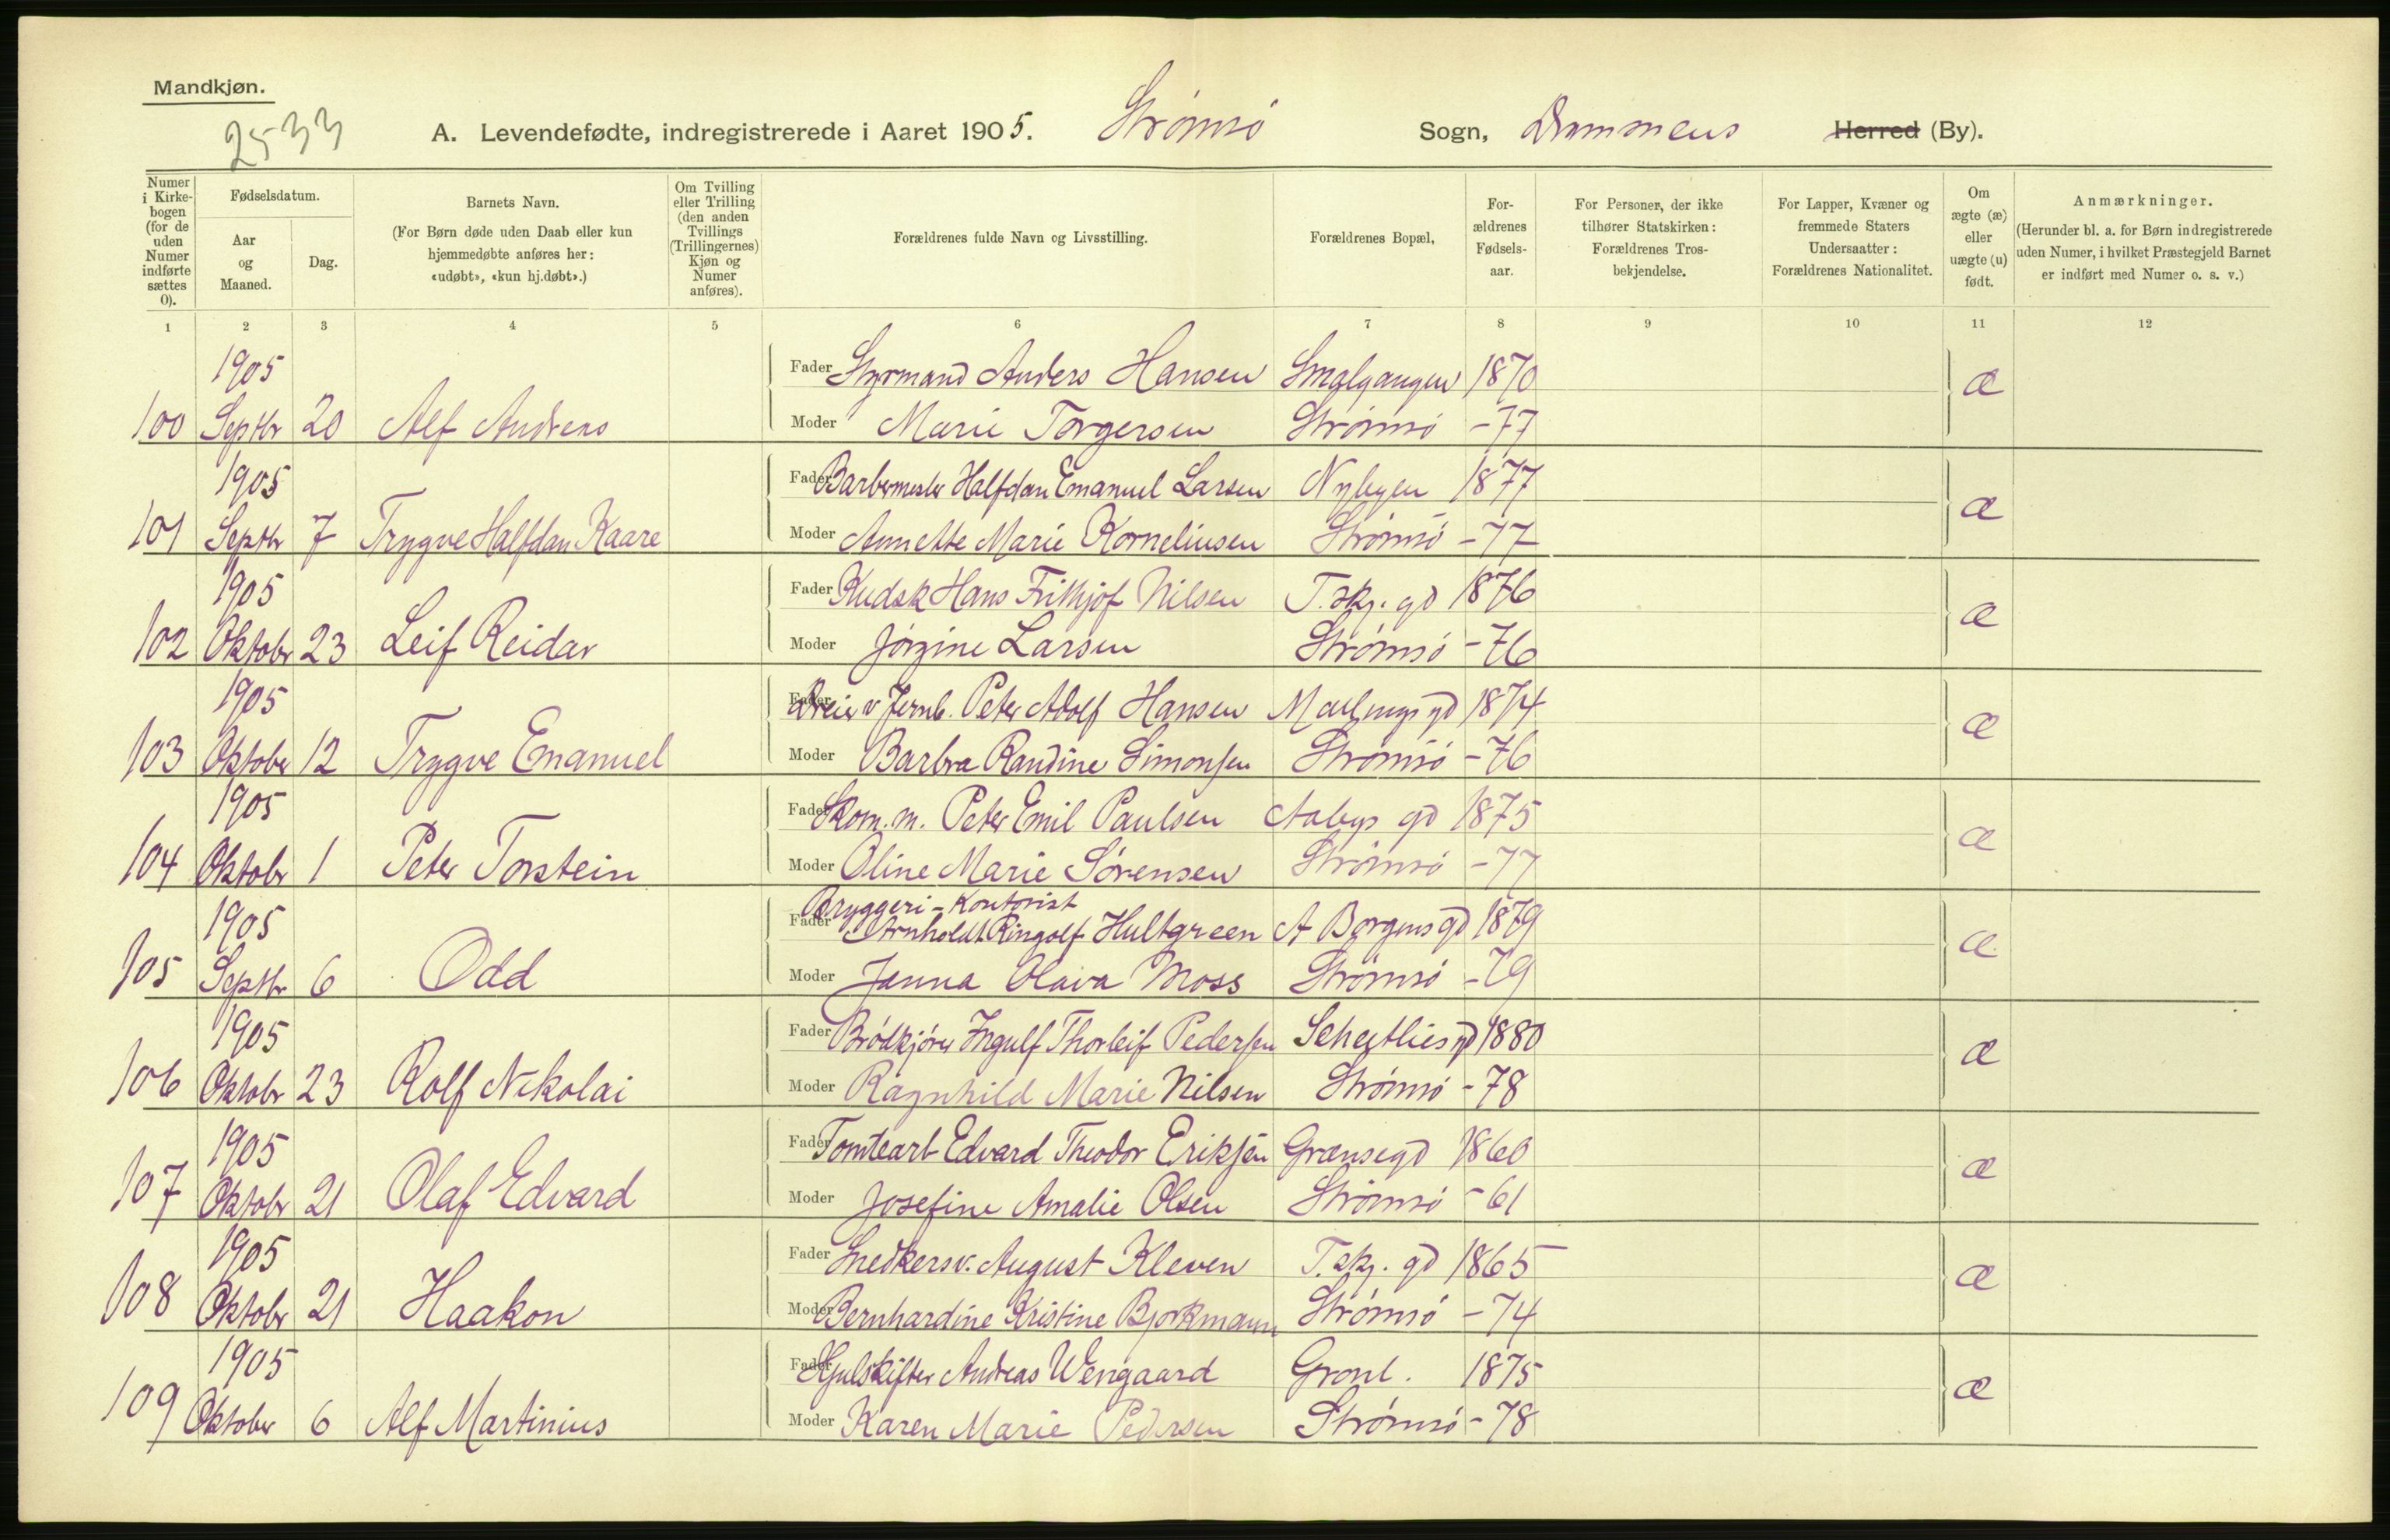 Mandkjøn.
2533
A. Levendefødte, indregistrerede i Aaret 1905. Strømsø Sogn, Drammens Herred (By).
Numer i Kirkebogen (for de uden Numer indførte sættes 0).
Fødselsdatum.
Aar og Maaned.
Dag.
Barnets Navn.
(For Børn døde uden Daab eller kun hjemmedøbte anføres her: «udøbt», «kun hj.døbt».)
Om Tvilling eller Trilling (den anden Tvillings (Trillingernes) Kjøn og Numer anføres).
Forældrenes fulde Navn og Livsstilling.
Forældrenes Bopæl,
Forældrenes Fødselsaar.
For Personer, der ikke tilhører Statskirken: Forældrenes Trosbekjendelse.
For Lapper, Kvæner og fremmede Staters Undersaatter: Forældrenes Nationalitet.
Om ægte (æ) eller uægte (u) født.
Anmærkninger.
(Herunder bl. a. for Børn indregistrerede uden Numer, i hvilket Præstegjeld Barnet er indført med Numer o. s. v.)
1 2 3 4 5 6 7 8 9 10 11 12
1905 Fader Styrmand Anders Hansen Smalgangen 1870 æ
100 Septbr 20 Alf Andreas Moder Marie Torgersen Strømsø -77
1905 Fader Barbermester Halfdan Emanuel Larsen Nybyen 1877 æ
101 Septbr 7 Trygve Halfdan Kaare Moder Annette Marie Korneliusen Strømsø -77
1905 Fader Kudsk Hans Frithjof Nilsen T. skj. gd 1876 æ
102 Oktobr 23 Leif Reidar Moder Jørgine Larsen Strømsø -76
1905 Fader Dreier v Jernb. Peter Adolf Hansen gd 1874 æ
103 Oktober 12 Trygve Emanuel Moder Barbra Randine Simonsen Strømsø -76
1905 Fader Skom. m. Peter Emil Paulsen Aabys gd 1875 æ
104 Oktobr 1 Peter Torstein Moder Oline Marie Sørensen Strømsø -77
Bryggeri-Kontorist
1905 Fader Arnholdt Ringolf Hultgreen A Borgens gd 1879 æ
105 Septbr 6 Odd Moder Janna Olava Moss Strømsø -79
1905 Fader Brødkjører Ingulf Thorleif Pedersen Scheitlies gd 1880 æ
106 Oktobr 23 Rolf Nikolai Moder Ragnhild Marie Nilsen Strømsø -78
1905 Fader Tomtearb Edvard Theodor Eriksen Grænsegd 1860 æ
107 Oktobr 21 Olaf Edvard Moder Josefine Amalie Olsen Strømsø -61
1905 Fader Snedkersv. August Kleven T. skj. gd 1865 æ
108 Oktobr 21 Haakon Moder Bernhardine Kristine Bjorkmann Strømsø -74
1905 Fader Hjulskifter Andreas Wengaard Gronl. 1875 æ
109 Oktober 6 Alf Martinius Moder Karen Marie Pedersen Strømsø -78